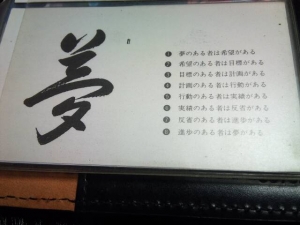 夢
❶ 夢のある者は希望がある
❷ 希望のある者は目標がある
❸ 目標のある者は計画がある
❹ 計画のある者は行動がある
❺ 行動のある者は実績がある
❻ 実績のある者は反省がある
❼ 反省のある者は進歩がある
❽ 進歩のある者は夢がある